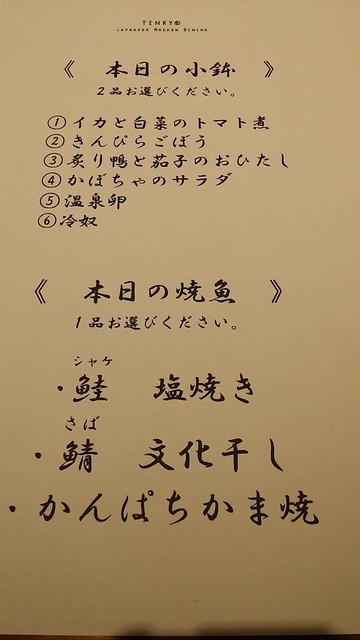 TENRYŪ
JAPANESE MODERN DINING
《 本日の小鉢 》
2品お選びください。
①イカと白菜のトマト煮
②きんぴらごぼう
③炙り鴨と茄子のおひたし
④かぼちゃのサラダ
⑤温泉卵
⑥冷奴
《 本日の焼魚 》
1品お選びください。
シャケ
・鮭 塩焼き
さば
・鯖 文化干し
・かんぱちかま焼